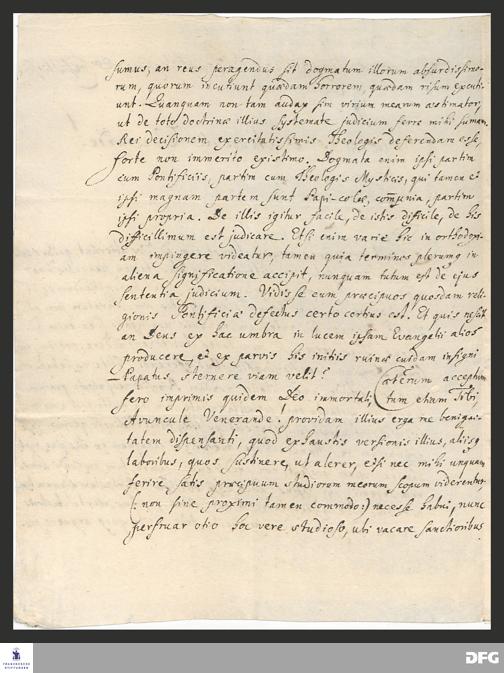 sumus, an reus peragendus sit dogmatum illorum absurdissimo-
rum, quorum incutiunt quædam horrorem, quædam risum excuti-
unt. Quanquam non tam audax sim virium mearum æstimator,
ut de toto doctrinæ illius systemate judicium ferre mihi sumam.
Rei decisionem exercitatissimis Theologis deferendam esse,
forte non immerito existimo. Dogmata enim ipsi partim
cum Pontificiis, partim cum Theologis Mysticis, qui tamen et
ipsi magnam partem sunt Papi-colæ, com̅unia, partim
ipsi propria. De illis igitur facile, de istis difficile, de his
difficillimum est judicare. Etsi enim varie hic in orthodoxi-
am impingere videatur, tamen quia terminos plerumq; in
aliena significatione accipit, nunquam tutum est de ejus
sententia judicium. Vidisse eum præcipuos quosdam reli-
gionis Pontificiæ defectus certo certius est. Et quis nescit
an Deus ex hac umbra in lucem ipsam Evangelii alios
producere, et ex parvis his initiis ruinæ cuidam insigni
Papatus sternere viam velit? Cæterum acceptum
fero inprimis quidem Deo immortali, tum etiam Tibi
Avuncule Venerande! providam illius erga me benigni-
tatem dispensanti, quod exhaustis versionis illius, aliisq;
laboribus, quos sustinere, ut alerer, etsi nec mihi unquam
ferire satis præcipuum studiorum meorum scopum viderentur
(: non sine proximi tamen commodo :) necesse habui, nunc
perfruar otio hoc vere studioso, ubi vacare sanctioribus
FRANCKESCHE
STIFTUNGEN
DFG